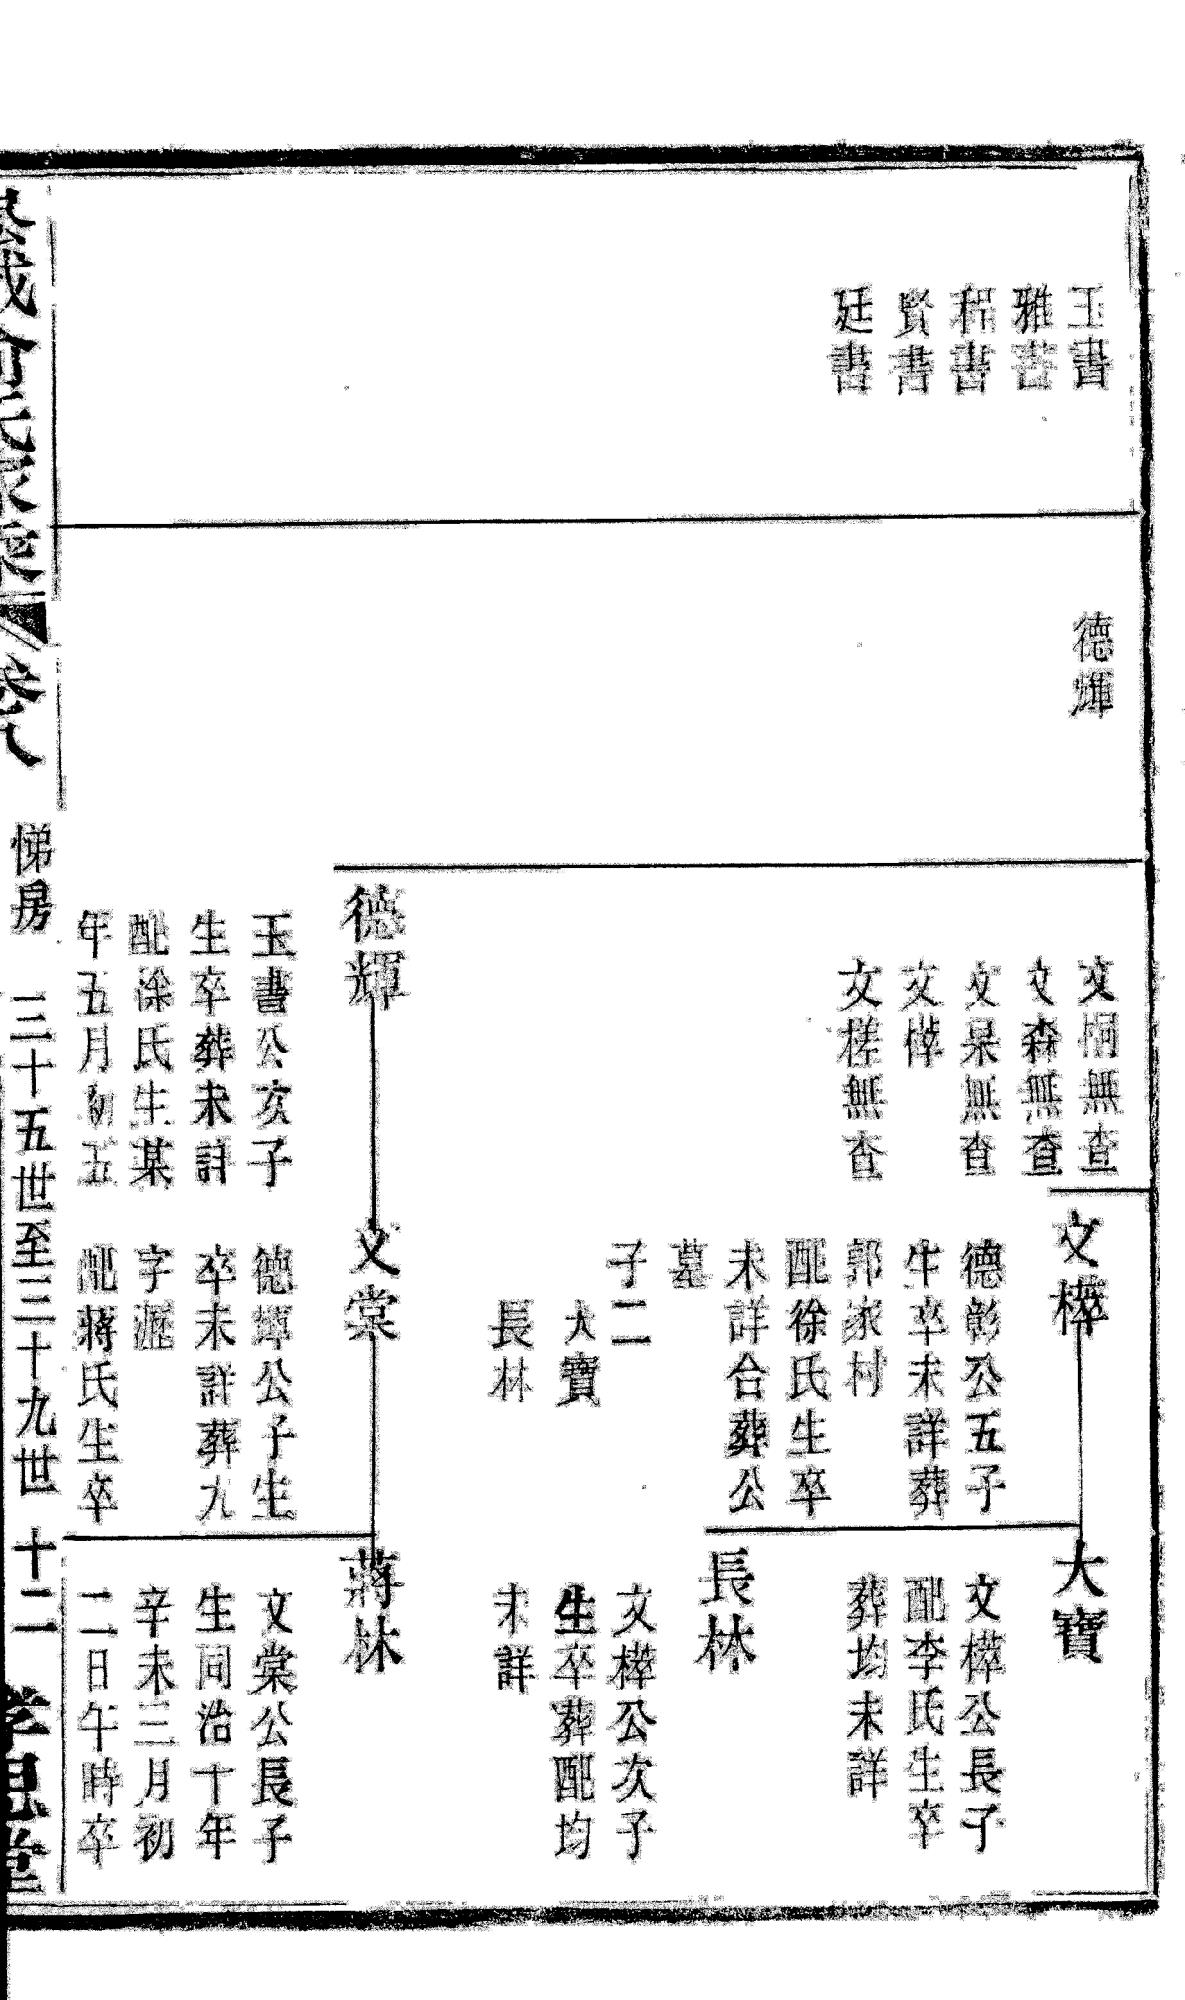 玉書
雅書
程書
賢書
廷書
德輝
文桐無查
文森無查
文杲無查
文樺
文槎無查
文樺
德彰公五子
生卒未詳葬
郭家村
配徐氏生卒
未詳合葬公
墓
子二
大寶
長林
大寶
文樺公長子
配李氏生卒
葬均未詳
長林
文樺公次子
生卒葬配均
未詳
德輝
玉書公亥子
生卒葬未詳
配涂氏生某
年五月初五
文棠
德輝公子生
卒未詳葬九
字瀝
配蔣氏生卒
蔣林
文棠公長子
生同治十年
辛未三月初
二日午時卒
俞氏家乘
卷八
悌房
三十五世至三十九世
十二
孝思堂